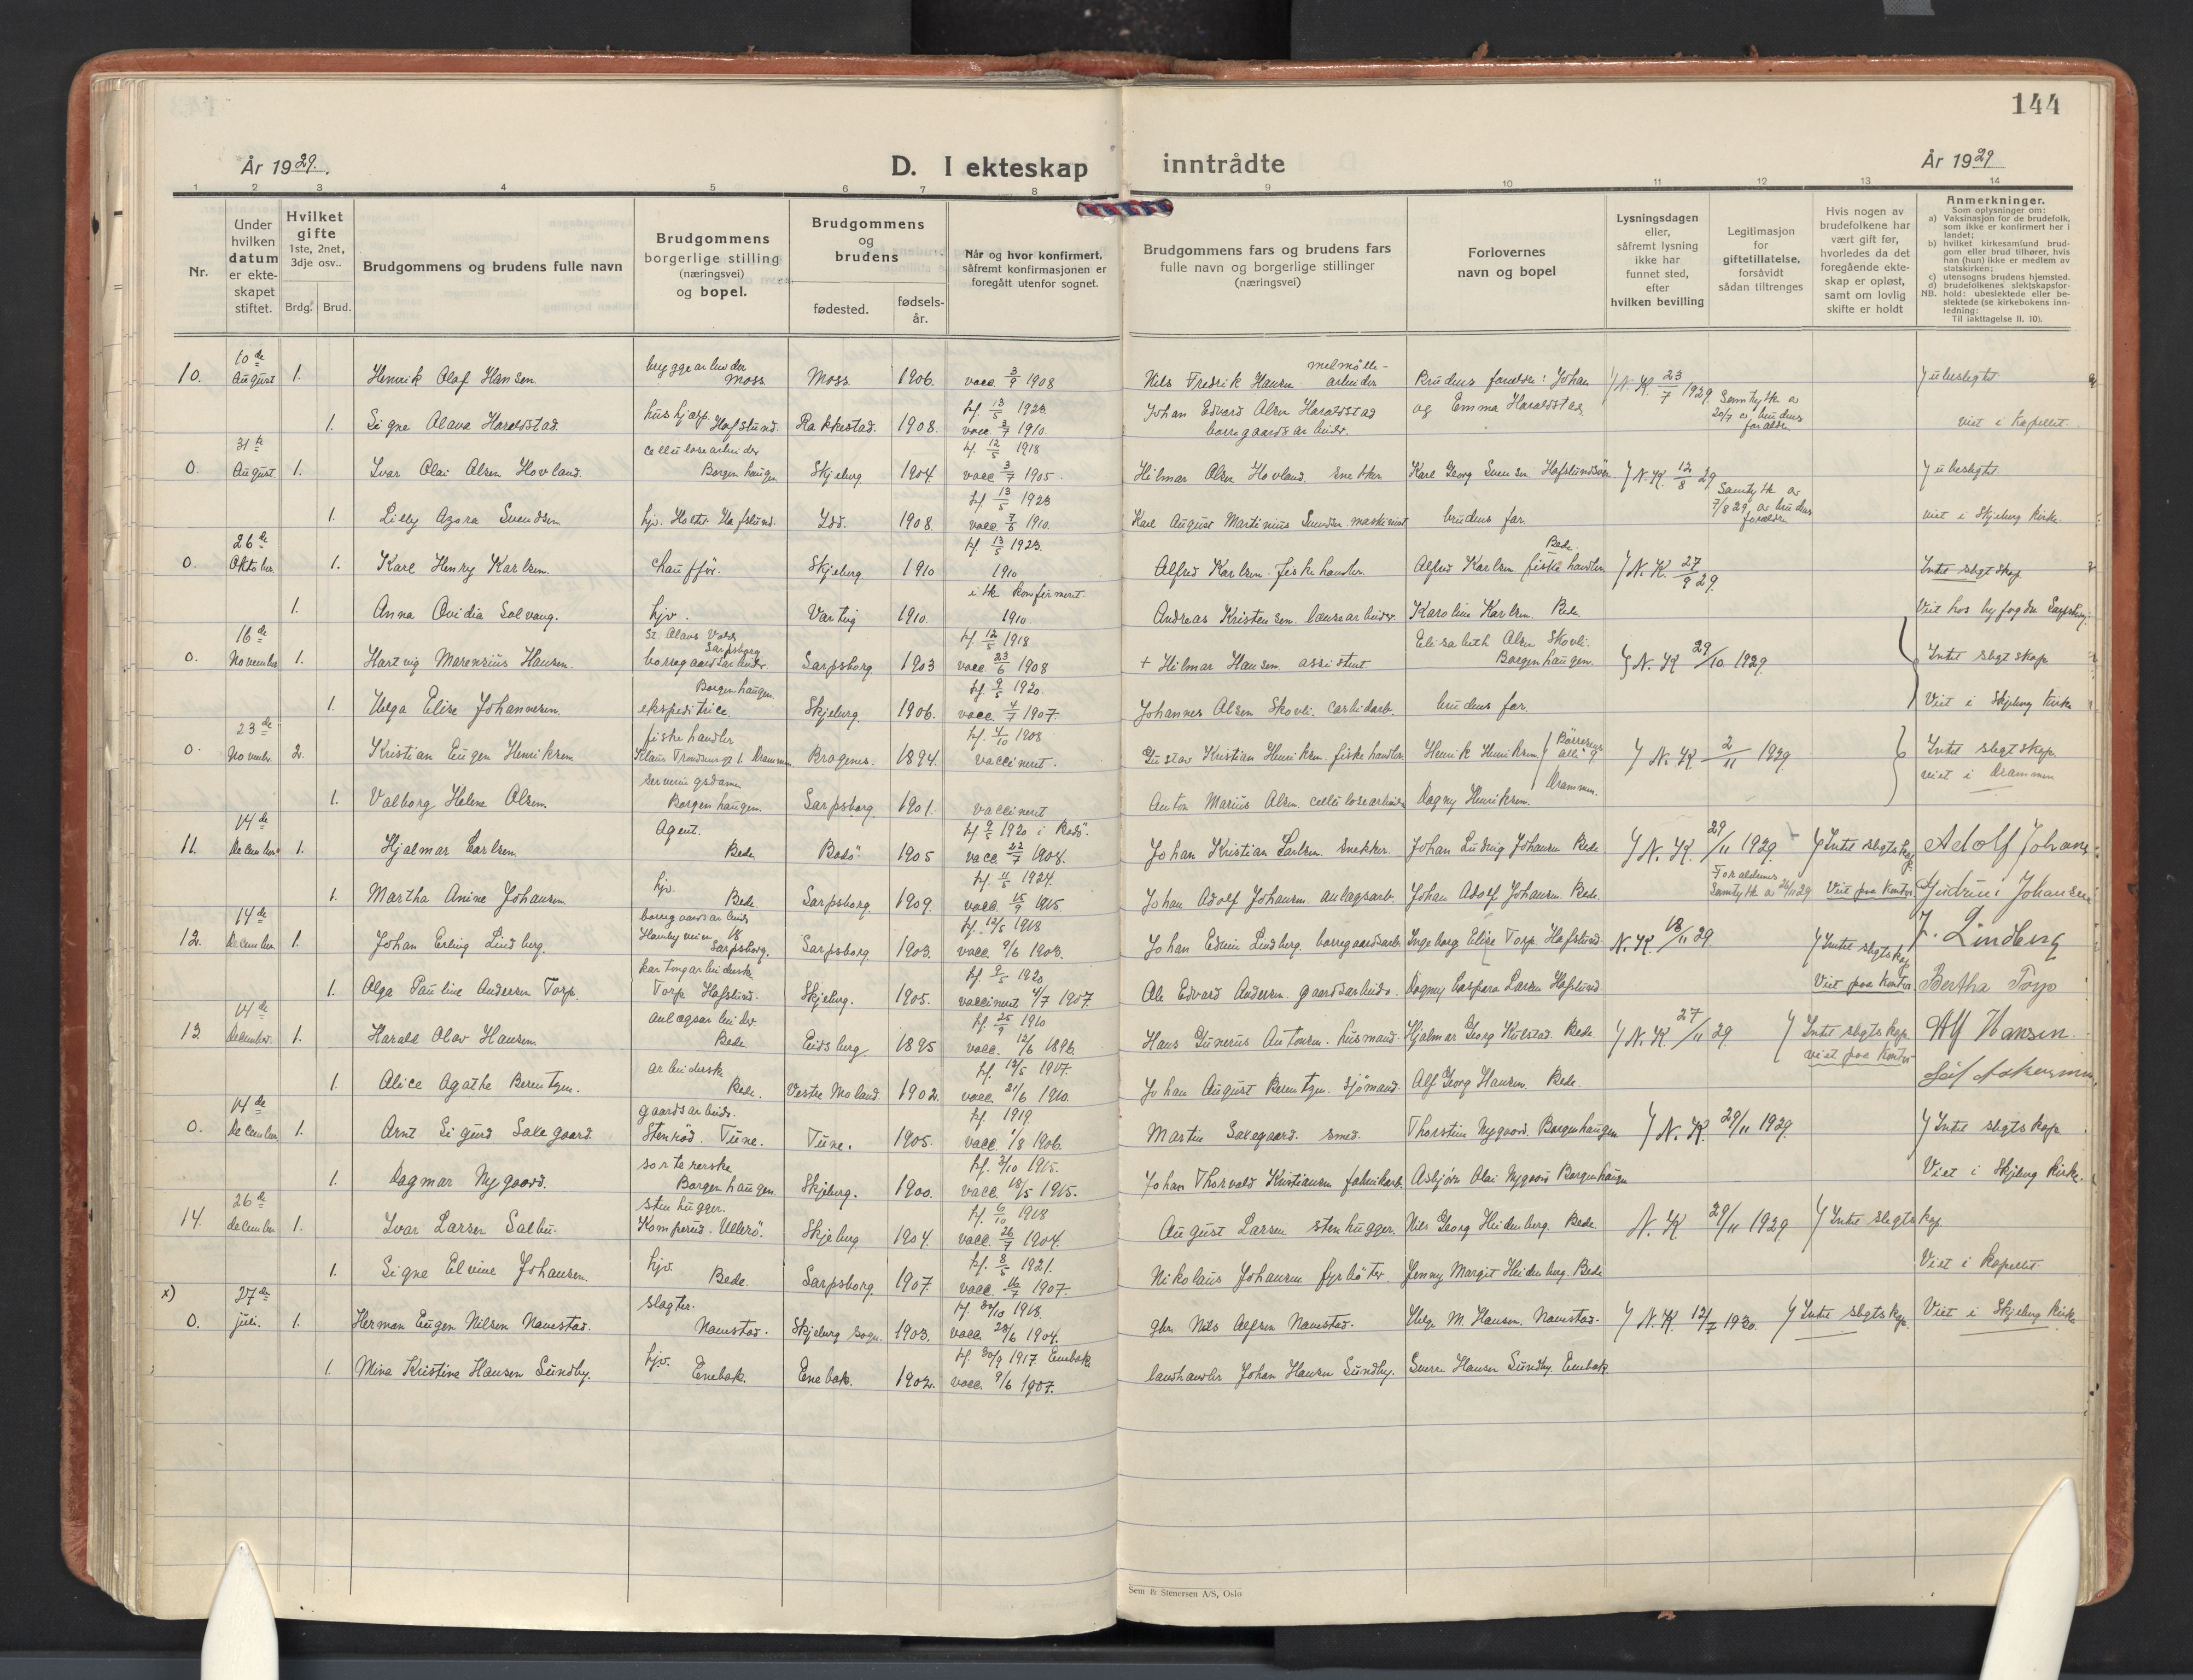 144
År 1929.
D. I ekteskap inntrådte
År 1929
1 2 3 4 5 6 7 8 9 10 11 12 13 14
Nr.
Under hvilken datum er ekteskapet stiftet.
Hvilket gifte 1ste, 2net, 3dje osv..
Brdg. Brud.
Brudgommens og brudens fulle navn
Brudgommens borgerlige stilling (næringsvei) og bopel.
Brudgommens og brudens
fødested. fødsels-år.
Når og hvor konfirmert, såfremt konfirmasjonen er foregått utenfor sognet.
Brudgommens fars og brudens fars fulle navn og borgerlige stillinger (næringsvei)
Forlovernes navn og bopel
Lysningsdagen eller, såfremt lysning ikke har funnet sted, efter hvilken bevilling
Legitimasjon for giftetillatelse, forsåvidt sådan tiltrenges
Hvis nogen av brudefolkene har vært gift før, hvorledes da det foregående ekteskap er opløst, samt om lovlig skifte er holdt
Anmerkninger.
Som oplysninger om:
a) Vaksinasjon for de brudefolk, som ikke er konfirmert her i landet;
b) hvilket kirkesamfund brudgom eller brud tilhører, hvis han (hun) ikke er medlem av statskirken;
c) utensogns brudens hjemsted.
d) brudefolkenes slektskapsforhold: ubeslektede eller beslektede (se kirkebokens innledning:
NB.
Til iakttagelse II. 10).
10. 10de August 1. Henrik Olaf Hansen bryggearbeider Moss Moss 1906. vacc 3/9 1908 Nils Fredrik Hansen melmölle-arbeider Brudens foreldre: Johan N. K. 23/7 1929 ubeslegtet
1. Signe Olava Haraldstad hushjælp. Hafslund. Rakkestad. 1908. kf. 13/5 1923 vacc 3/7 1910. Johan Edvard Olsen Haraldstad borregaardsarbeider. og Emma Haraldstad. Samtykke av 20/7 av brudens foreldre viet i Kapellet
0. 31te August 1. Ivar Olai Olsen Hovland. cellulosearbeider Borgenhaugen Skjeberg 1904 kf. 12/5 1918 vacc 3/7 1905. Hilmar Olsen Hovland snekker Karl Georg Svensen. N. K. 12/8 29 ubeslegtet
1. Lilly Azora Svendsen hjv. Hafslund. Idd. 1908. kf 13/5 1923 vacc. 7/6 1910. Karl August Martinius Svendsen maskinist brudens far. Samtykke av 7/8 29, av brudens foreldre viet i Skjeberg kirke.
0. 26de Oktober 1. Karl Henry Karlsen. Chauffør. Skjeberg 1910 kf. 13/5 1923. 1910 Alfred Karlsen. fiskehandler Alfred Karlsen fiskehandler Bede. N. K. 27/9 29. Intet slegtskap
1. Anna Ovidia Solvang. hjv. Varteig 1910. ikke konfirmert 1910. Andreas Kristensen. Karoline Karlsen. Bede. Viet hos byfogden Sarpsborg.
0. 16de November 1. Hartvig Marenzius Hansen. St. Olavs Vold Sarpsborg borregaardsarbeider. Sarpsborg 1903 kf. 12/5 1918 vacc 23/6 1908 + Hilmar Hansen assistent Elisabeth Olsen Skovli. Borgenhaugen. N. K. 29/10 1929. Intet slegtskap.
1. Helga Elise Johannesen. Borgenhaugen ekspeditrice. Skjeberg 1906. kf. 9/5 1920. vacc. 4/7 1907. Johannes Olsen Skovli. carbidarb. brudens far. Viet i Skjeberg Kirke
0. 23de November. 2. Kristian Eugen Henriksen fiskehandler Drammen Bragenes. 1894. kf. 4/10 1908 vaccineret. Gustav Kristian Henriksen. fiskehandler. Henrik Henriksen N. K. 2/11 1929. Intet slegtskap.
1. Valborg Helene Olsen. serveringsdame Borgenhaugen. Sarpsborg. 1901. vaccineret Anton Marius Olsen. cellulosearbeider Dagny Henriksen. Drammen. viet i Drammen
11. 14de December 1. Hjalmar Carlsen. Agent. Bede Bodö. 1905 kf. 9/5 1920 i Bodö. vacc 22/7 1908. Johan Kristian Carlsen. snekker. Johan Ludvig Johansen Bede N. K. 29/11 1929. Intet slegtskap Adolf Johans
1. Martha Anine Johansen. hjv. Bede. Sarpsborg. 1909. kf. 11/5 1924. vacc. 15/9 1915. Johan Adolf Johansen. anlagsarb. Johan Adolf Johansen. Bede. Foreldrenes Samtykke av 26/11 29 Viet paa Kontor. Gudrun Johansen
12. 14de December. 1. Johan Erling Lindberg. borregaardsarbeid. Sarpsborg. Sarpsborg 1903. kf. 12/5 1918 vacc. 9/6 1903. Johan Edvin Lindberg. borregaardsarb. Ingeborg Elise Torp. Hafslund. N. K. 18/11 29. Intet slegtskap J. Lindberg
1. Olga Pauline Andersen Torp. kartongarbeiderske Torp Hafslund. Skjeberg. 1905. kf. 9/5 1920 vaccineret 4/7 1907 Ole Edvard Andersen. gaardsarbeider. Dagny Caspara Larsen Hafslund. Viet paa Kontor Bertha Torp
13. 14de December. 1. Harald Olav Hansen. anlægsarbeider. Bede Eidsberg 1895 kf. 25/9 1910 vacc. 12/6 1896. Hans Gunerius Antonsen. husmand. Hjalmar Georg Hulstad. Bede. N. K. 27/11 29 Intet slegtskap. viet paa Kontor Alf Hansen.
1. Alice Agathe Berentzen. arbeiderske Bede. Vestre Moland. 1902. kf. 12/5 1917. vacc. 21/6 1910. Johan August Berentzen. sjömand. Alf Georg Hansen. Bede.
0. 14de December 1. Arnt Sigurd Saxegaard gaardsarbeider. Stenröd. Tune. Tune. 1905. kf. 1919 vacc. 1/8 1906. Martin Saxegaard. smed. Thorstein Nygaard. Borgenhaugen N. K. 29/11 1929. Intet slegtskap
1. Dagmar Nygaard. sortererske Borgenhaugen. Skjeberg. 1900. kf. 3/10 1915. vacc. 18/5 1915. Johan Thorvald Kristiansen fabrikarb. Asbjørn Olai Nygaard Borgenhaugen Viet i Skjeberg kirke.
14. 26de december 1. Ivar Larsen Salbu. stenhugger. Kamperud. Ullerö. Skjeberg 1904. kf. 6/10 1918 vacc. 26/7 1904. August Larsen stenhugger. Nils Georg Heidenberg. Bede. N. K. 29/11 1929 Intet slegtskap
1. Signe Elvine Johansen. hjv. Bede. Sarpsborg. 1907. kf. 8/5 1921. vacc. 16/7 1907. Nikolaus Johansen fyrböter. Jenny Margit Heidenberg. Bede Viet i Kapellet
x) 0. 27de juli. 1. Herman Eugen Nilsen Navestad. slagter. Navestad. Skjeberg sogn. 1903. kf. 20/10 1918. vacc. 23/6 1904. gbr. Nils Navestad. Helge M. Hansen. Navestad. N. K. 12/7 1930. Intet slegtskap. Viet i Skjeberg kirke
1. Mina Kristine Hansen Sundby. hjv. Enebak. Enebak. 1902. kf. 30/9 1917 Enebak vacc. 9/6 1907. landhandler Johan Hansen Sundby. Sverre Hansen Sundby Enebak.
Sem & Stenersen A/S, Oslo